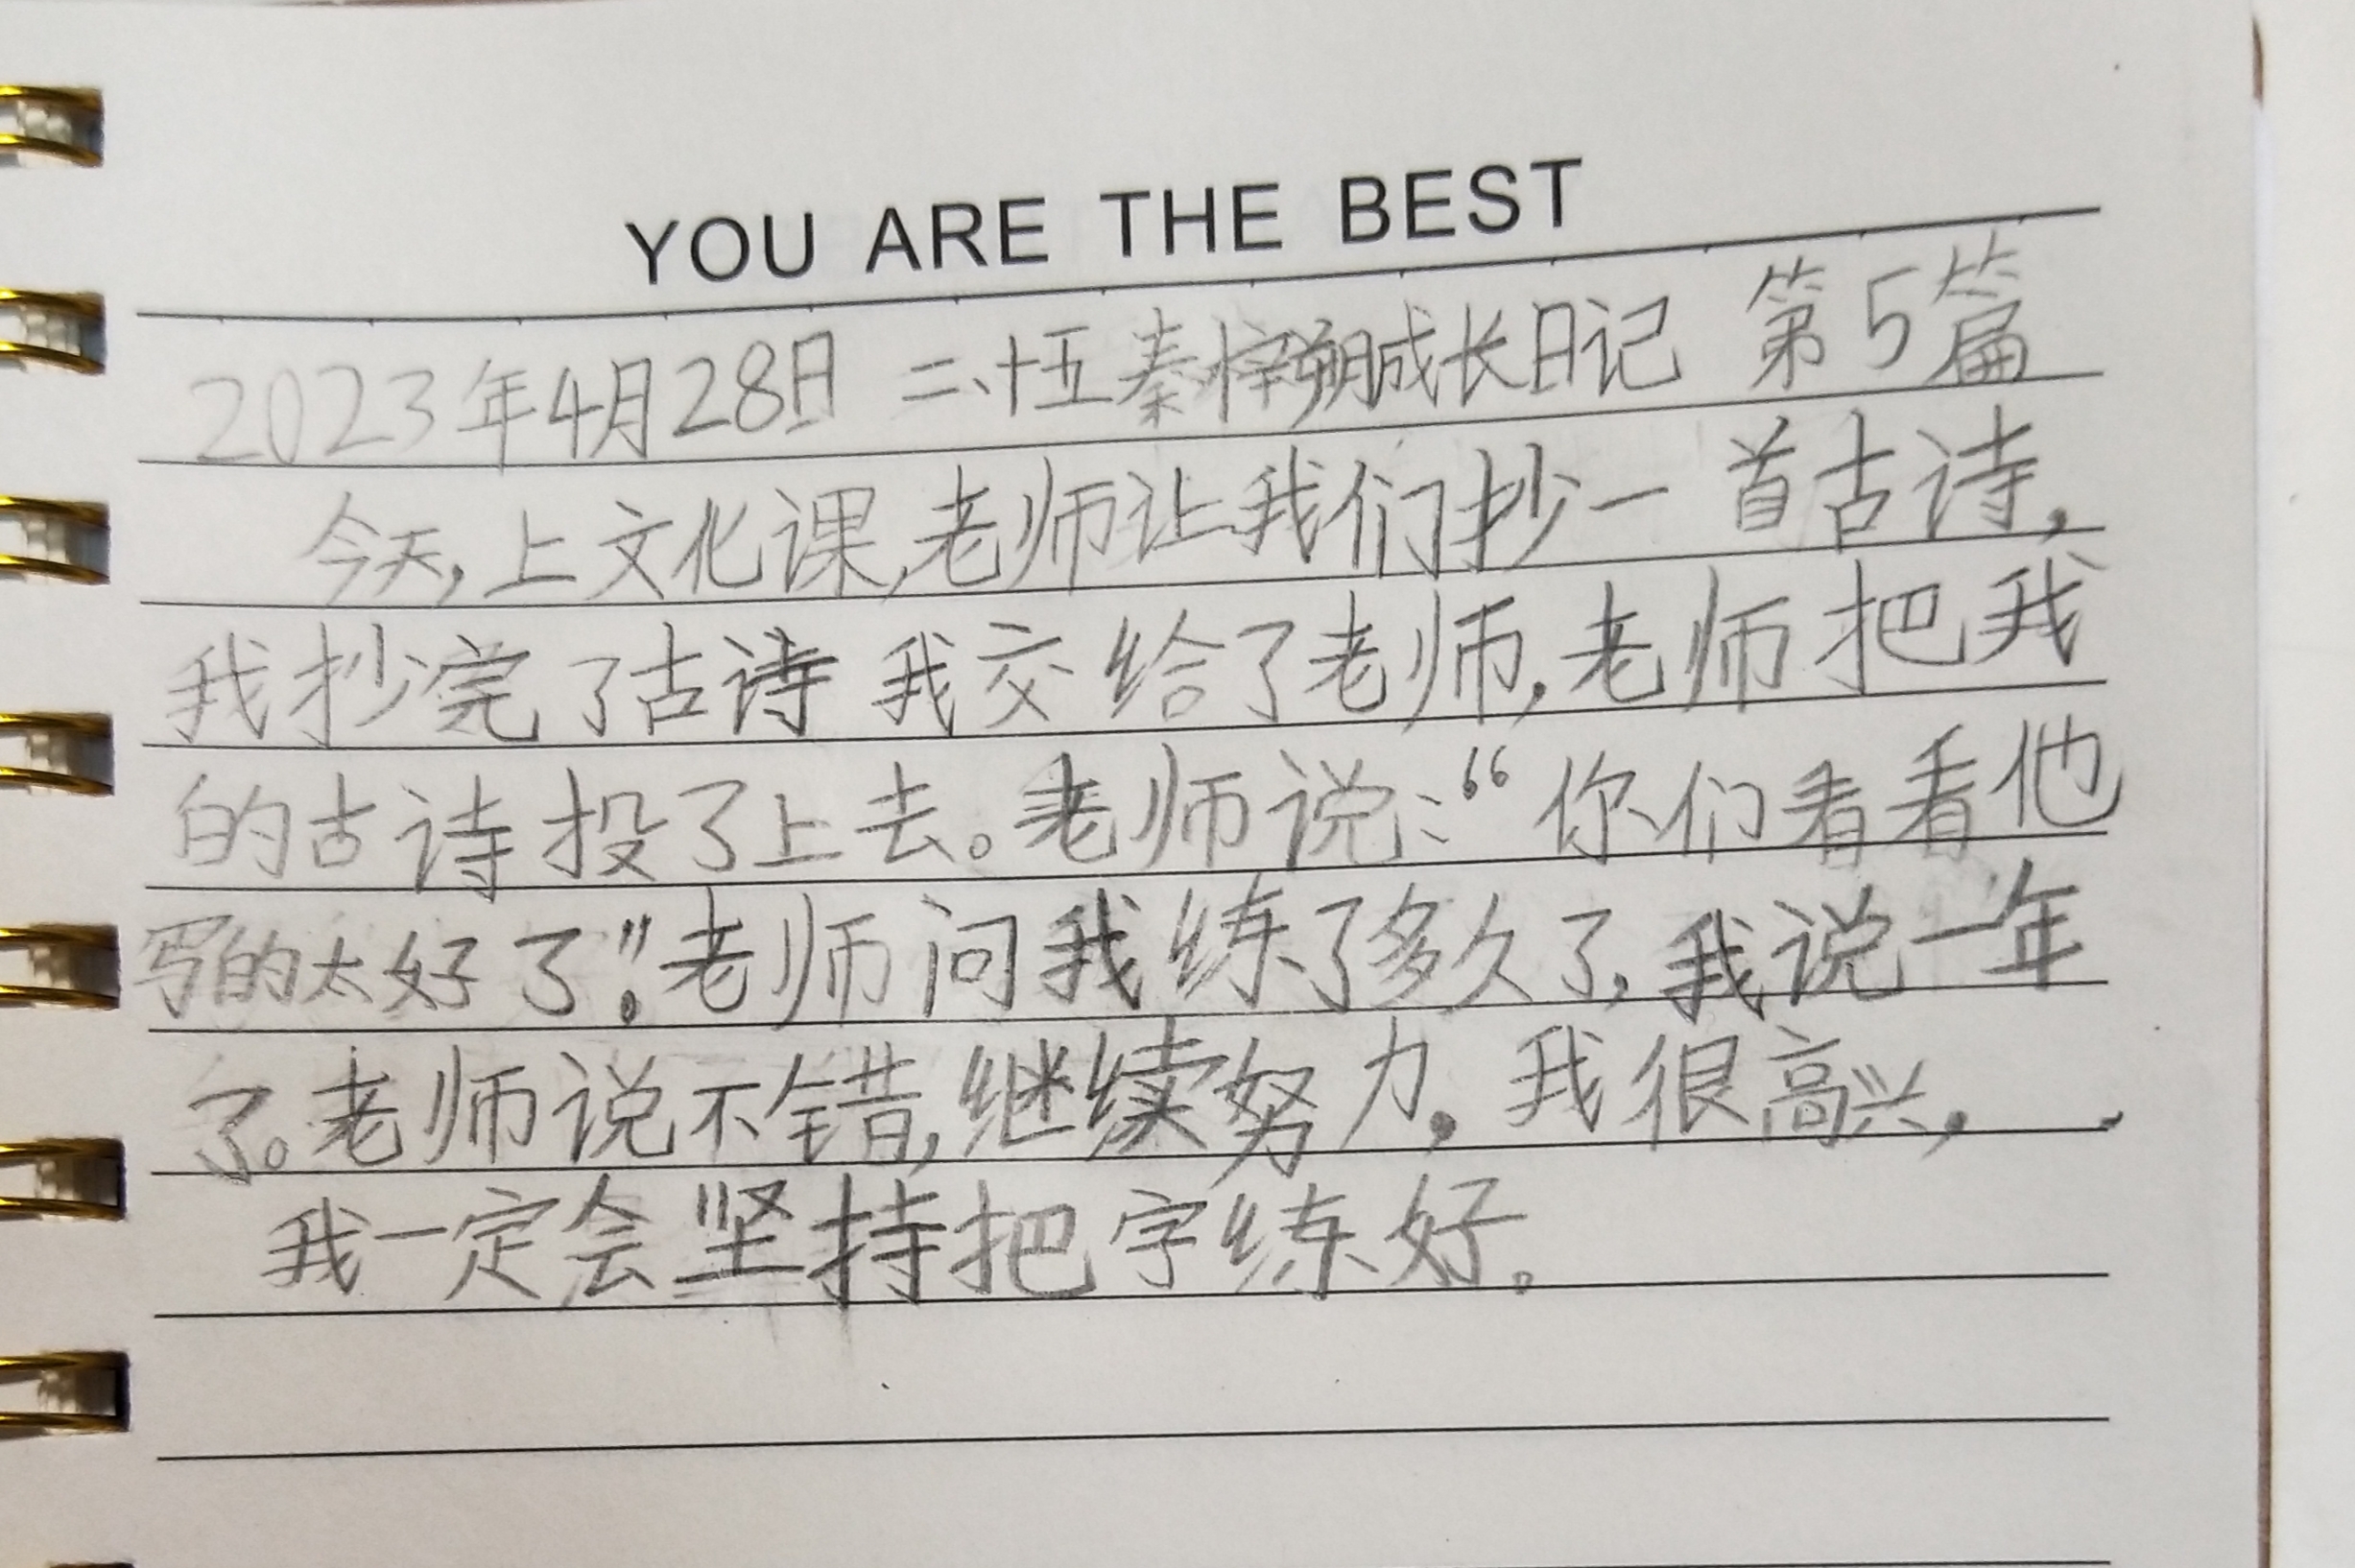 YOU ARE THE BEST
2023年4月28日 二、十五秦梓朔成长日记 第5篇
今天,上文化课,老师让我们抄一首古诗,
我抄完了古诗 我交给了老师,老师把我
的古诗投了上去。老师说:“你们看看他
写的太好了!”老师问我练了多久了,我说一年
了。老师说不错,继续努力,我很高兴,
我一定会坚持把字练好。